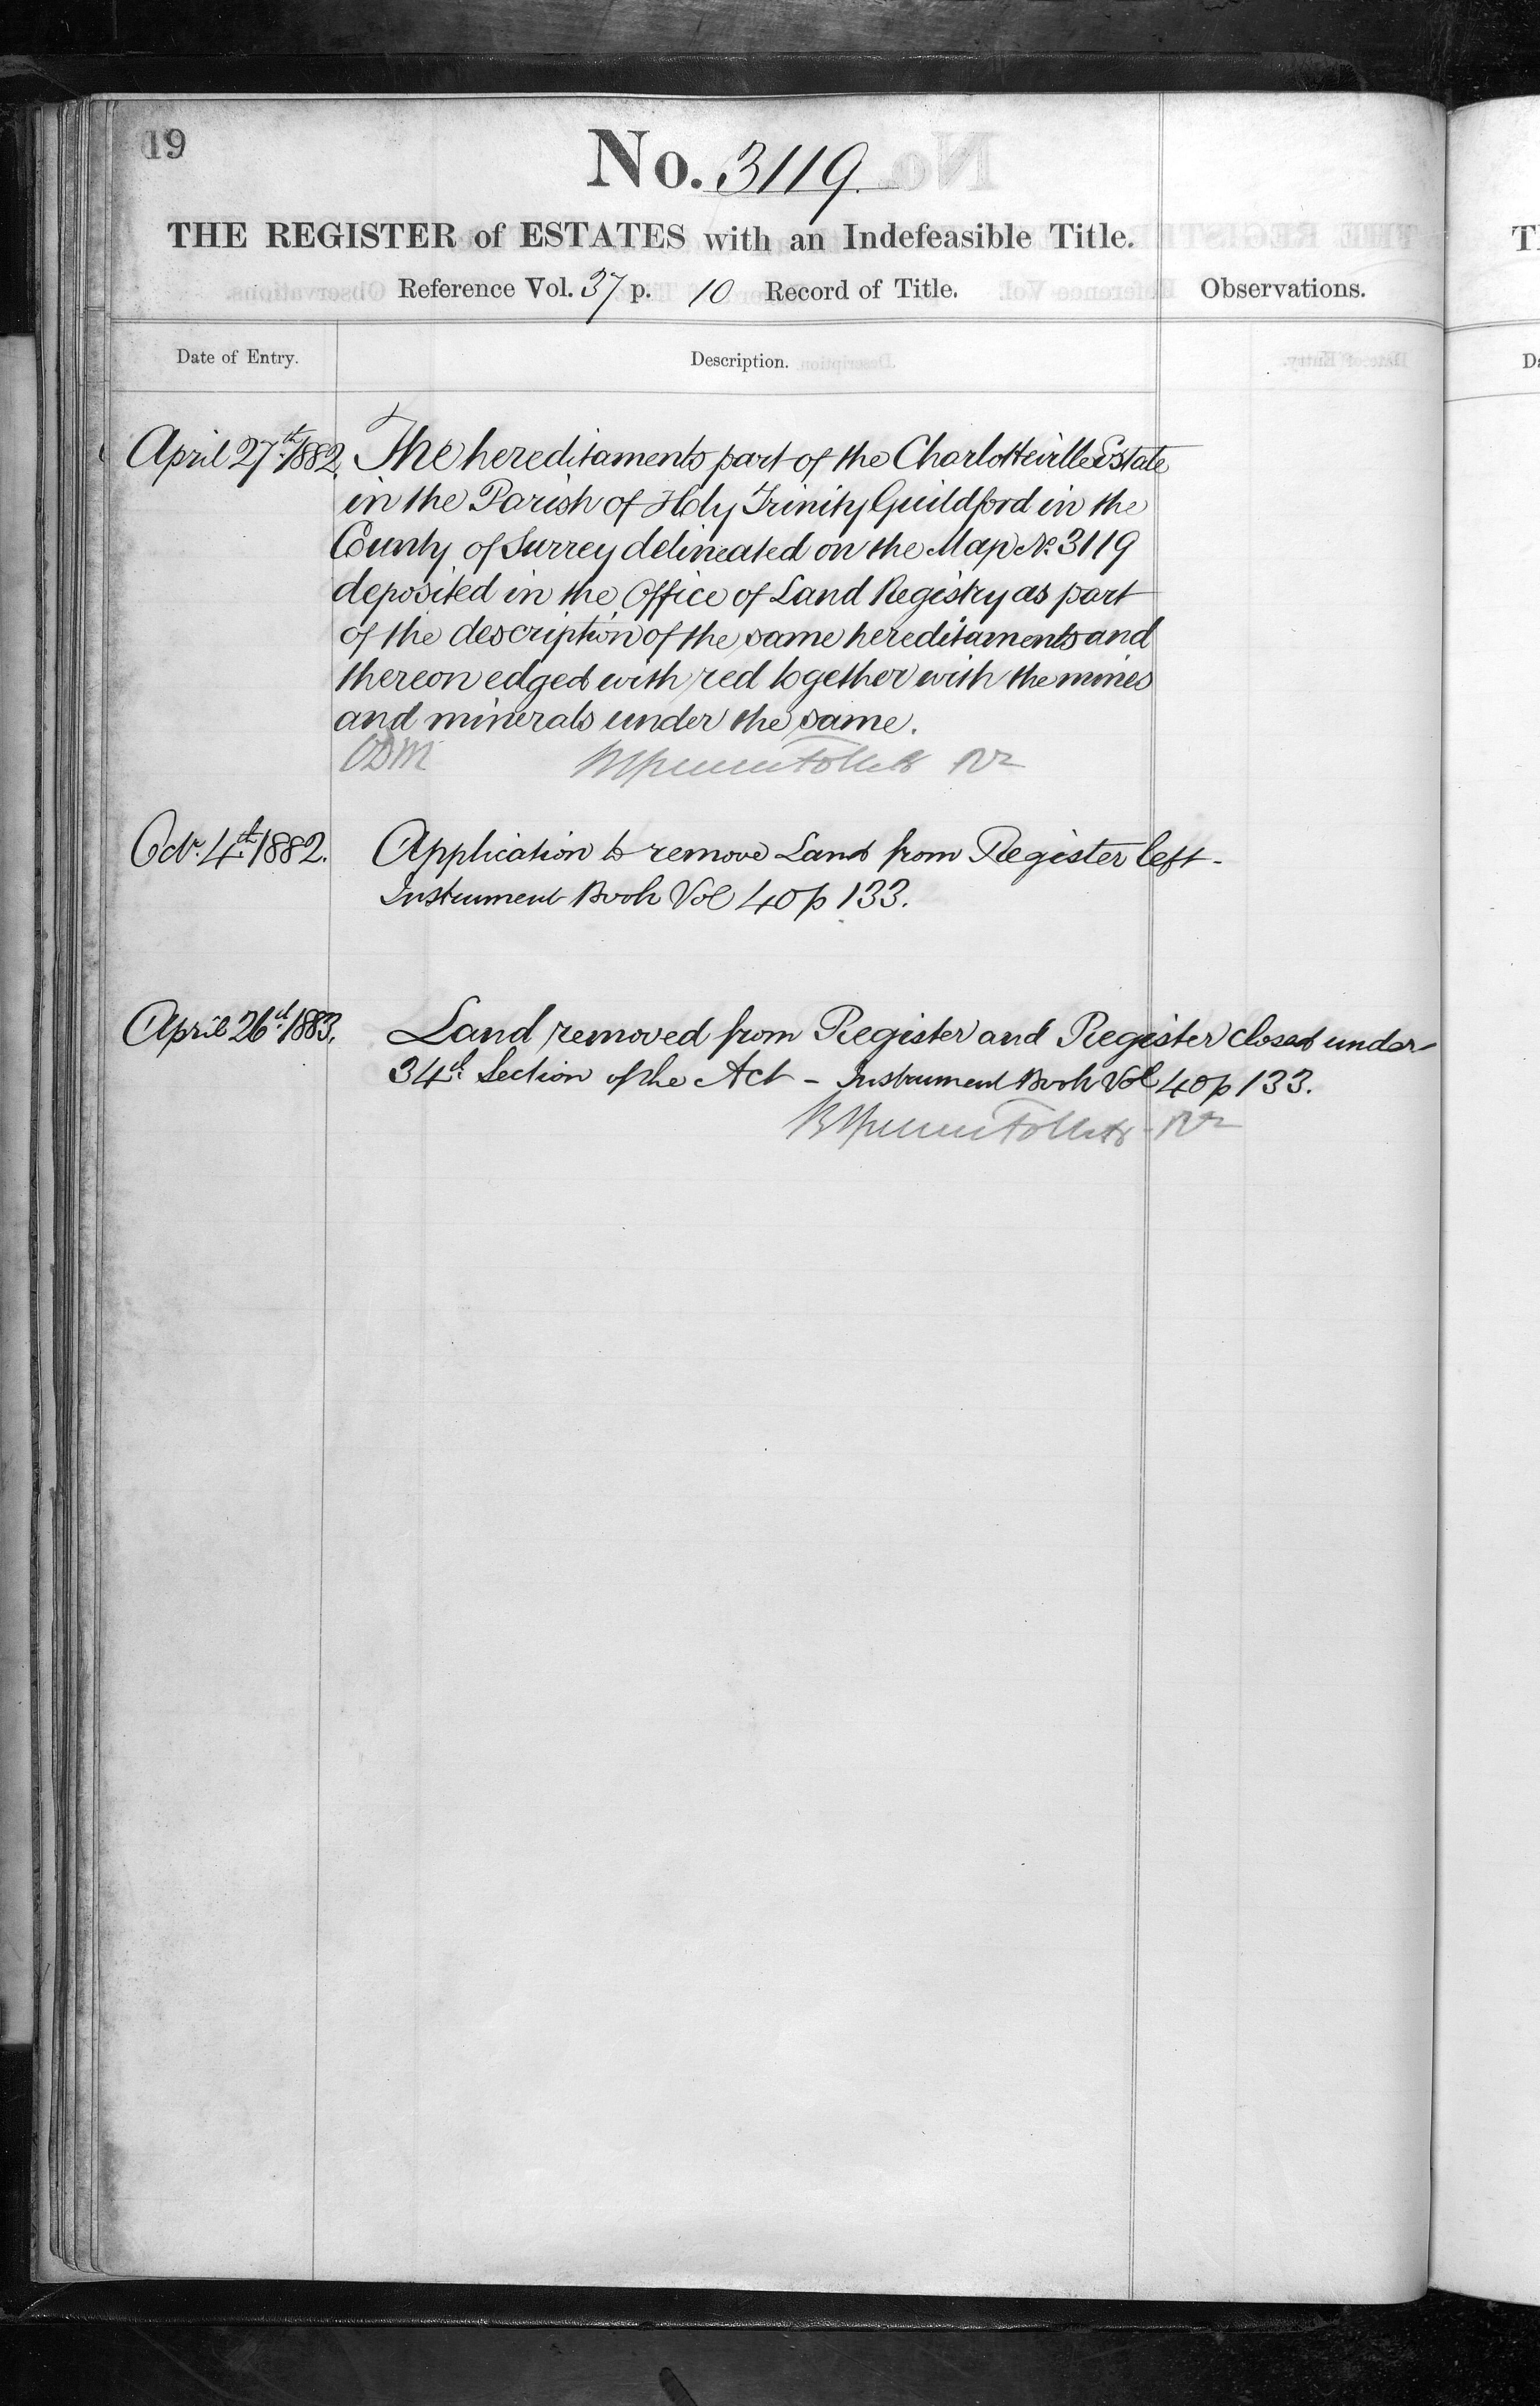 19
No. 3119.
THE REGISTER of ESTATES with an Indefeasible Title.
Reference Vol. 37 p. 10 Record of Title.
Observations.
Date of Entry.
Description.
April 27th 1882. The hereditaments part of the Charlotteville Estate
in the Parish of Holy Trinity Guildford in the
County of Surrey delineated on the Map No. 3119
deposited in the Office of Land Registry as part
of the description of the same hereditaments and
thereon edged with red together with the mines
and minerals under the same.
Octr. 4th 1882. Application to remove Land from Register left -
Instrument Book Vol 40 p 133.
April 26th 1883. Land removed from Register and Register closed under
34th Section of the Act - Instrument Book Vol 40 p 133.